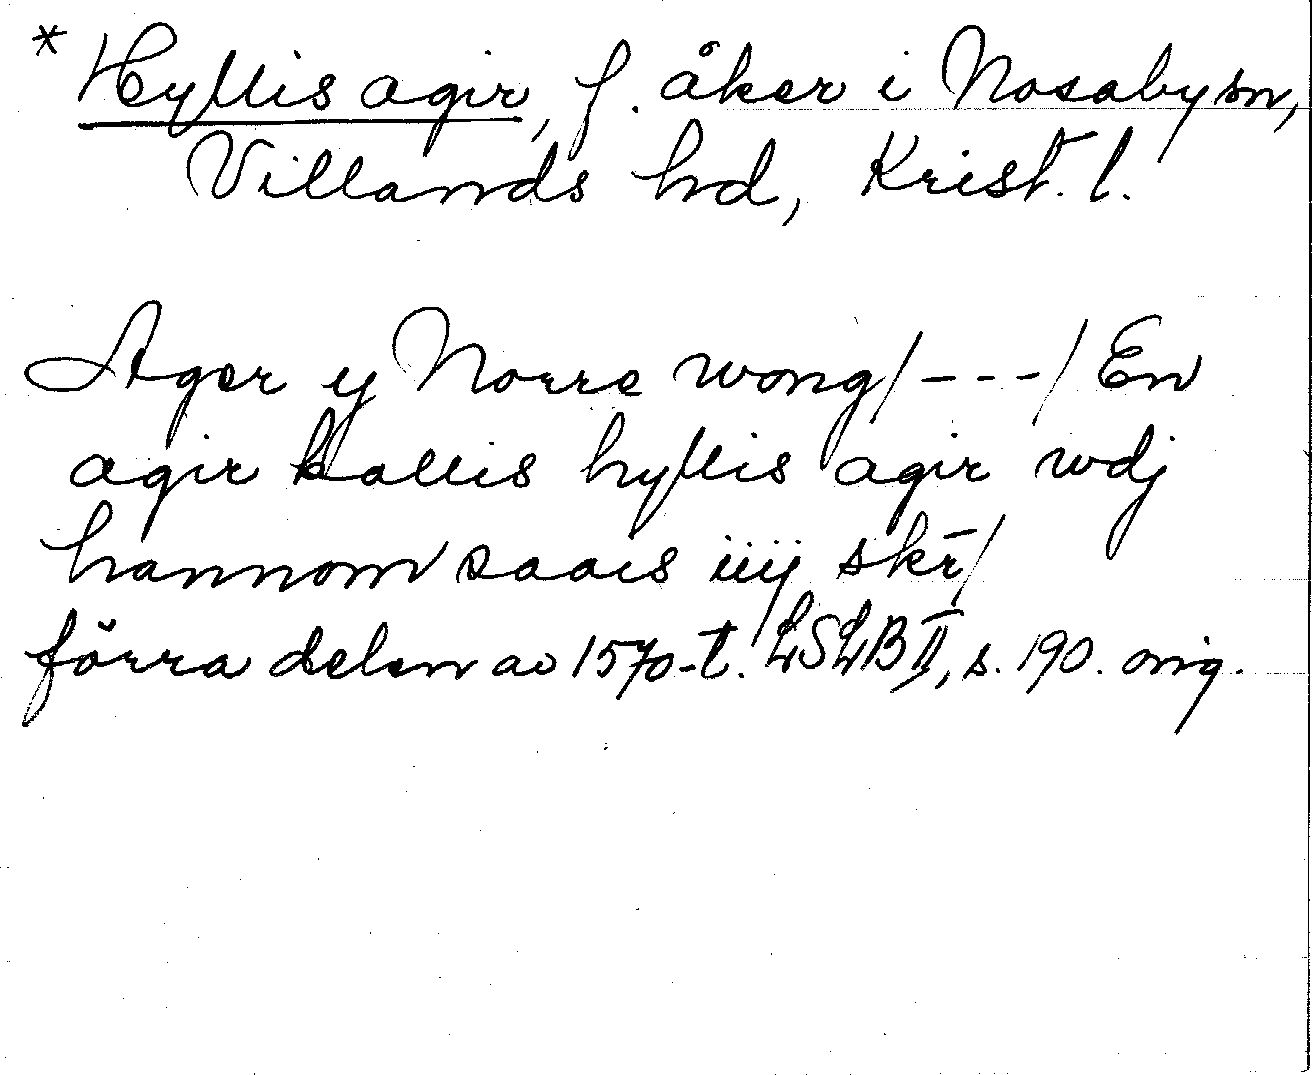 * Hyllis agir, f. åker i Nosaby sn,
Villands hd, Krist. l.
Ager y Norre wong/---/En
agir kallis hyllis agir wdj
hannom saais iiij skr̄/
förra delen av 1570-t. LSLB II, s. 190. orig.